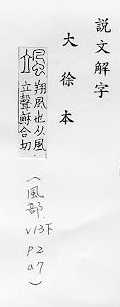 說文解字
大徐本
颯 翔風也从風
立聲穌合切
(風部 v13下 p2 a7)